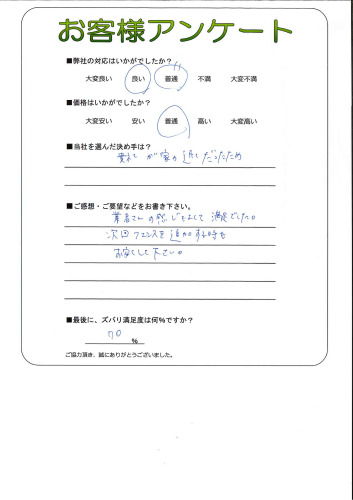 お客様アンケート
■弊社の対応はいかがでしたか？
大変良い 良い 普通 不満 大変不満
■価格はいかがでしたか？
大変安い 安い 普通 高い 大変高い
■当社を選んだ決め手は？
が家の近くだったため
■ご感想・ご要望などをお書き下さい。
業者さんの感じもよくて満足でした。
次回フェンスを追加する時も
お安くして下さい。
■最後に、ズバリ満足度は何%ですか？
70 %
ご協力頂き、誠にありがとうございました。